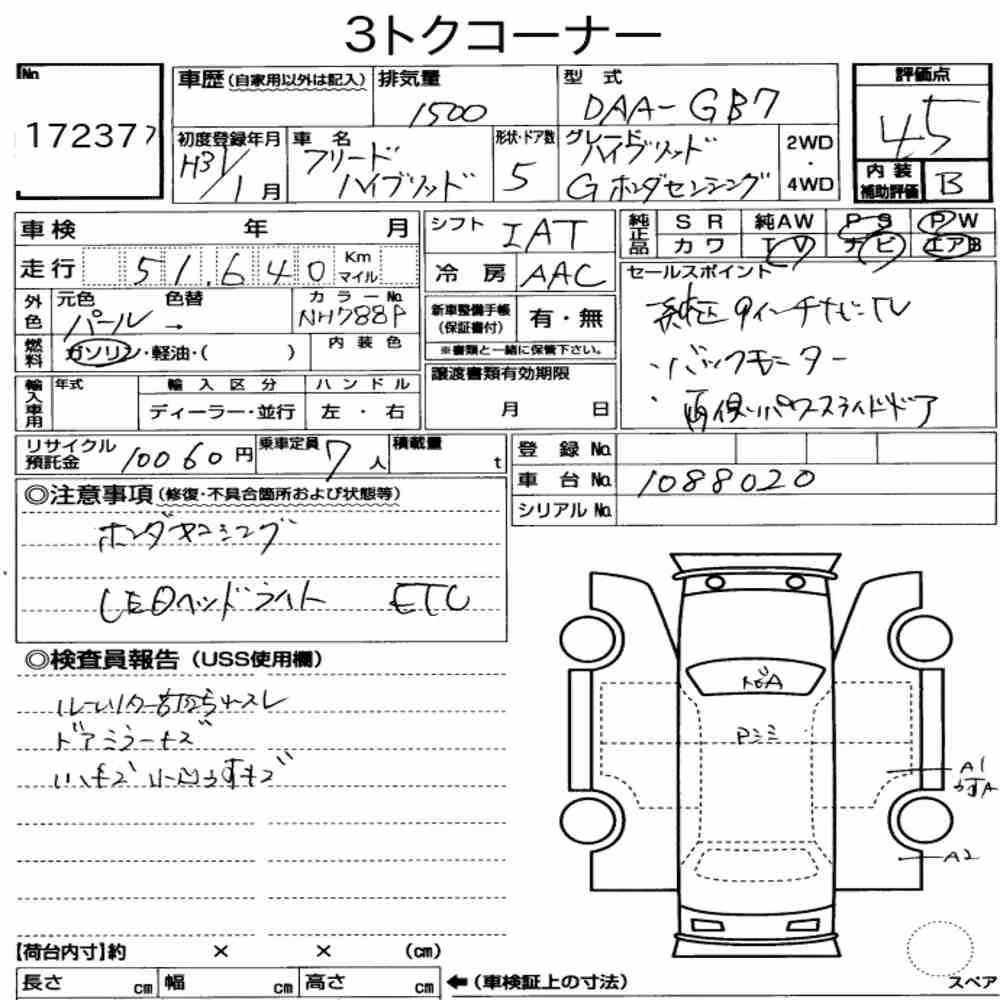 3トクコーナー
No.
172377
車歴(自家用以外は記入)
排気量
1500
型式
DAA-GB7
評価点
4.5
初度登録年月
H31/1月
車名
フリード
ハイブリッド
形状・ドア数
5
グレード
ハイブリッド
Gホンダセンシング
2WD
・
4WD
内装
補助評価
B
車検 年 月
シフト IAT
純正品
SR 純AW PS PW
カワ TV ナビ エアB
走行 51,640 Km マイル
冷房 AAC
セールスポイント
純正9インチナビTV
・バックモニター
・両側パワースライドドア
外色
元色 色替
パール→
カラーNo.
NH788P
新車整備手帳
(保証書付)
有・無
※書類と一緒に保管下さい。
燃料
ガソリン・軽油・( )
内装色
譲渡書類有効期限
月 日
輸入車用
年式
輸入区分
ハンドル
ディーラー・並行
左・右
リサイクル
預託金
10060円
乗車定員
7人
積載量
t
登録No.
車台No. 1088020
シリアルNo.
◎注意事項(修復・不具合箇所および状態等)
ホンダセンシング
LEDヘッドライト ETC
◎検査員報告(USS使用欄)
スレ
ドアミラーキズ
トビA
Pミミ
A1
うすA
A2
【荷台内寸】約 × × (cm)
長さ cm 幅 cm 高さ cm
←(車検証上の寸法)
スペア